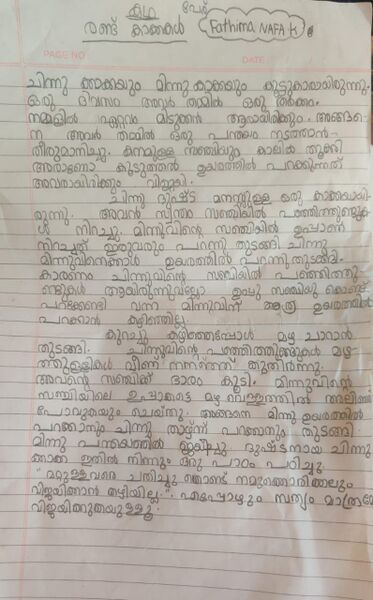 കഥ
പേര്
രണ്ട് കാക്കകൾ Fathima NAFA K
PAGE NO: DATE:
ചിന്നു കാക്കയും മിന്നു കാക്കയും കൂട്ടുകാരായിരുന്നു.
ഒരു ദിവസം അവർ തമ്മിൽ ഒരു തർക്കം.
നമ്മളിൽ ഏറ്റവും മിടുക്കൻ ആരായിരിക്കും. അങ്ങനെ
ന അവർ തമ്മിൽ ഒരു പന്തയം നടത്താൻ
തീരുമാനിച്ചു. കനമുള്ള സഞ്ചിയും കാലിൽ തൂക്കി
ആരാണോ കൂടുതൽ ഉയരത്തിൽ പറക്കുന്നത്
അവരായിരിക്കും വിജയി.
ചിന്നു ദുഷ്ട മനസ്സുള്ള ഒരു കാക്കയായി
രുന്നു. അവൻ സ്വന്തം സഞ്ചിയിൽ പഞ്ഞിത്തുണ്ടുക
ൾ നിറച്ചു. മിന്നുവിന്റെ സഞ്ചിയിൽ ഉപ്പാണ്
നിറച്ചത് ഇരുവരും പറന്നു തുടങ്ങി. ചിന്നു
മിന്നുവിനെക്കാൾ ഉയരത്തിൽ പറന്നു തുടങ്ങി.
കാരണം ചിന്നുവിന്റെ സഞ്ചിയിൽ പഞ്ഞിത്തു
ണ്ടുകൾ ആയിരുന്നുവല്ലോ. ഉപ്പു സഞ്ചിയു കൊണ്ട്
പറക്കേണ്ടി വന്ന മിന്നുവിന് അത്ര ഉയരത്തിൽ
പറക്കാൻ കഴിഞ്ഞില്ല
കുറച്ചു കഴിഞ്ഞപ്പോൾ മഴ ചാറാൻ
തുടങ്ങി. ചിന്നുവിന്റെ പഞ്ഞിത്തുണ്ടുകൾ മഴ
ത്തുള്ളികൾ വീണ് നനഞ്ഞ് കുതിർന്നു.
അവന്റെ സഞ്ചിക്ക് ഭാരം കൂടി. മിന്നുവിന്റെ
സഞ്ചിയിലെ ഉപ്പാകട്ടെ മഴവെള്ളത്തിൽ അലിഞ്ഞ്
പോവുകയും ചെയ്തു. അങ്ങനെ മിന്നു ഉയരത്തിൽ
പറക്കാനും ചിന്നു താഴ്ന്ന് പറക്കാനും തുടങ്ങി
മിന്നു പന്തയത്തിൽ ജയിച്ചു. ദുഷ്ടനായ ചിന്നു
കാക്ക ഇതിൽ നിന്നും ഒരു പാഠം പഠിച്ചു
" മറ്റുള്ളവരെ ചതിച്ചു കൊണ്ട് നമുക്കൊരിക്കലും
വിജയിക്കാൻ കഴിയില്ല." എപ്പോഴും സത്യം മാത്രമേ
വിജയിക്കുകയുള്ളൂ.